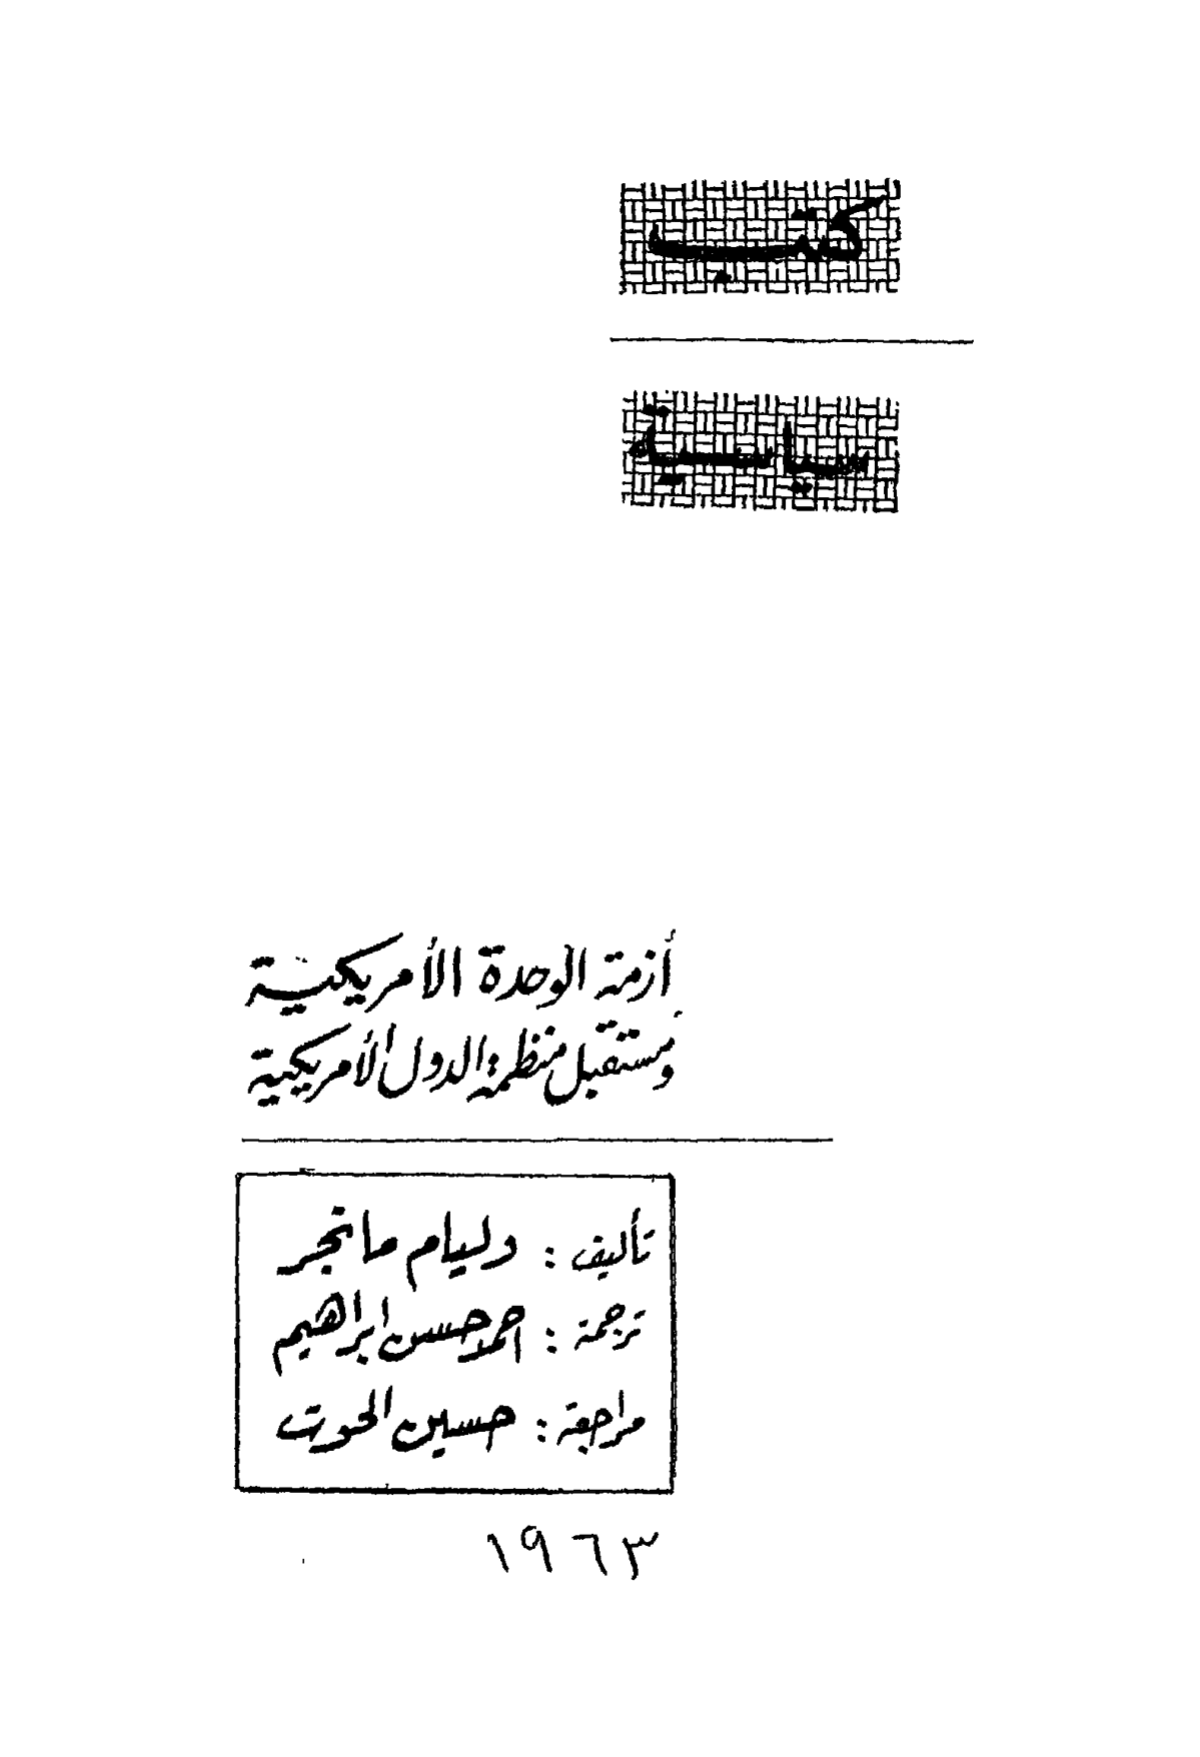 كتب
سياسية
أزمة الوحدة الأمريكية
ومستقبل منظمة الدول الأمريكية
تأليف : وليام مانجر
ترجمة : احمد حسن ابراهيم
مراجعة : حسين الحوت
١٩٦٣